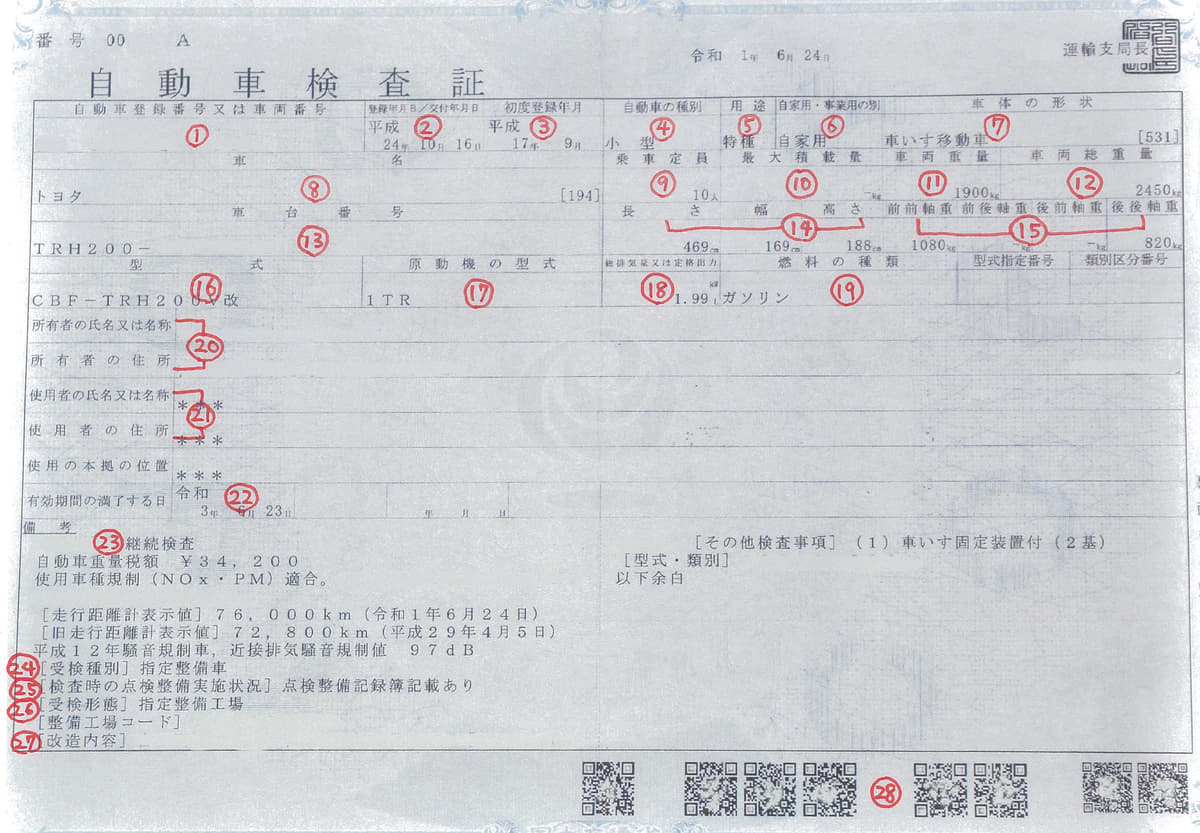 番号 00 A
令和 1年 6月 24日
運輸支局長
自動車検査証
自動車登録番号又は車両番号 登録年月日/交付年月日 初度登録年月 自動車の種別 用途 自家用・事業用の別 車体の形状
① 平成 ② 平成 ③ ④ ⑤ ⑥ ⑦
24年 10月 16日 17年 9月 小型 特種 自家用 車いす移動車 [531]
車名 乗車定員 最大積載量 車両重量 車両総重量
⑧ ⑨ ⑩ ⑪ ⑫
トヨタ [194] 10人 -kg 1900kg 2450kg
車台番号 長さ 幅 高さ 前前軸重 前後軸重 後前軸重 後後軸重
⑬ ⑭ ⑮
TRH200- 469cm 169cm 188cm 1080kg -kg -kg 820kg
型式 原動機の型式 総排気量又は定格出力 燃料の種類 型式指定番号 類別区分番号
⑯ ⑰ ⑱ kW ⑲
CBF-TRH200V改 1TR 1.99L ガソリン
所有者の氏名又は名称
⑳
所有者の住所
使用者の氏名又は名称 ***
㉑
使用者の住所 ***
使用の本拠の位置 ***
有効期間の満了する日 令和 ㉒
3年 6月 23日 年 月 日
備考
㉓ 継続検査
自動車重量税額 ¥34,200
使用車種規制(NOx・PM)適合。
[走行距離計表示値]76,000km(令和1年6月24日)
[旧走行距離計表示値]72,800km(平成29年4月5日)
平成12年騒音規制車,近接排気騒音規制値 97dB
㉔ [受検種別]指定整備車
㉕ [検査時の点検整備実施状況]点検整備記録簿記載あり
㉖ [受検形態]指定整備工場
[整備工場コード]
㉗ [改造内容]
[その他検査事項](1)車いす固定装置付(2基)
[型式・類別]
以下余白
㉘